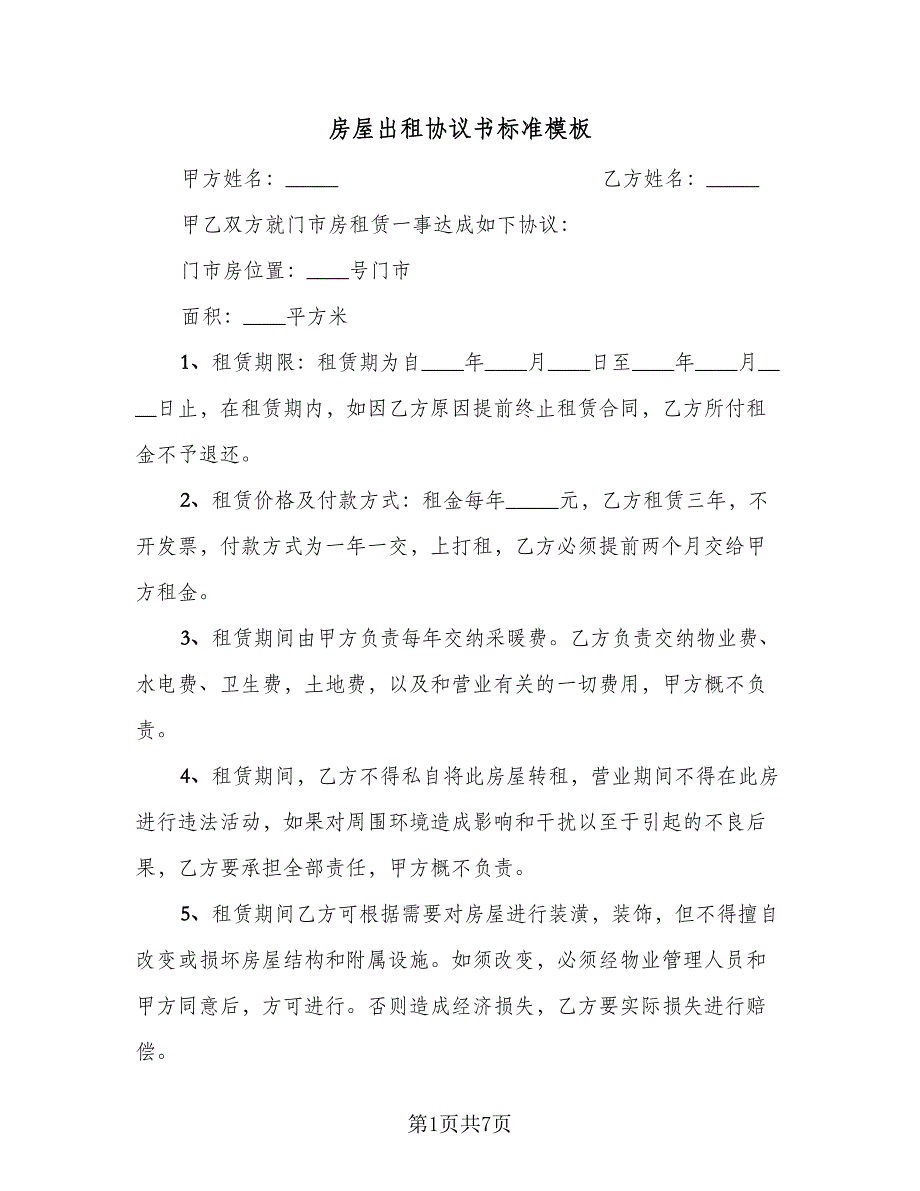 房屋出租协议书标准模板
甲方姓名：_____ 乙方姓名：_____
甲乙双方就门市房租赁一事达成如下协议：
门市房位置：____号门市
面积：____平方米
1、租赁期限：租赁期为自____年____月____日至____年____月__
__日止，在租赁期内，如因乙方原因提前终止租赁合同，乙方所付租
金不予退还。
2、租赁价格及付款方式：租金每年_____元，乙方租赁三年，不
开发票，付款方式为一年一交，上打租，乙方必须提前两个月交给甲
方租金。
3、租赁期间由甲方负责每年交纳采暖费。乙方负责交纳物业费、
水电费、卫生费，土地费，以及和营业有关的一切费用，甲方概不负
责。
4、租赁期间，乙方不得私自将此房屋转租，营业期间不得在此房
进行违法活动，如果对周围环境造成影响和干扰以至于引起的不良后
果，乙方要承担全部责任，甲方概不负责。
5、租赁期间乙方可根据需要对房屋进行装潢，装饰，但不得擅自
改变或损坏房屋结构和附属设施。如须改变，必须经物业管理人员和
甲方同意后，方可进行。否则造成经济损失，乙方要实际损失进行赔
偿。
第1页共7页